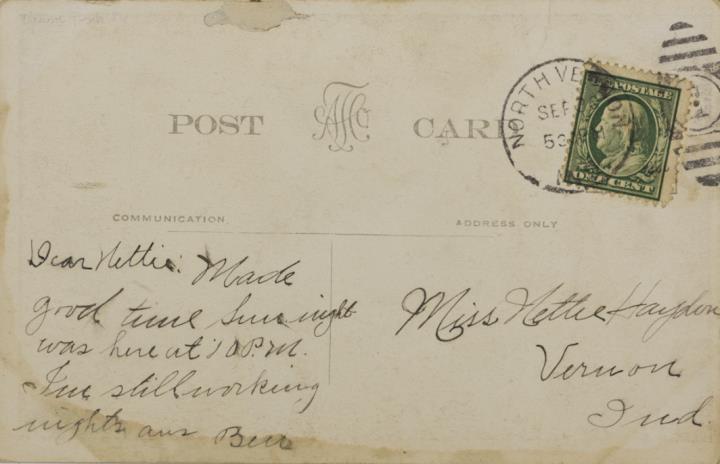 NORTH VERNON
SEP
530
U.S. POSTAGE
ONE CENT
POST CARD
COMMUNICATION
ADDRESS ONLY
Dear Nettie. Made
good time Sun night
was here at 10 P.M.
I'm still working
nights ans Ben
Miss Nettie Haydon
Vernon
Ind.